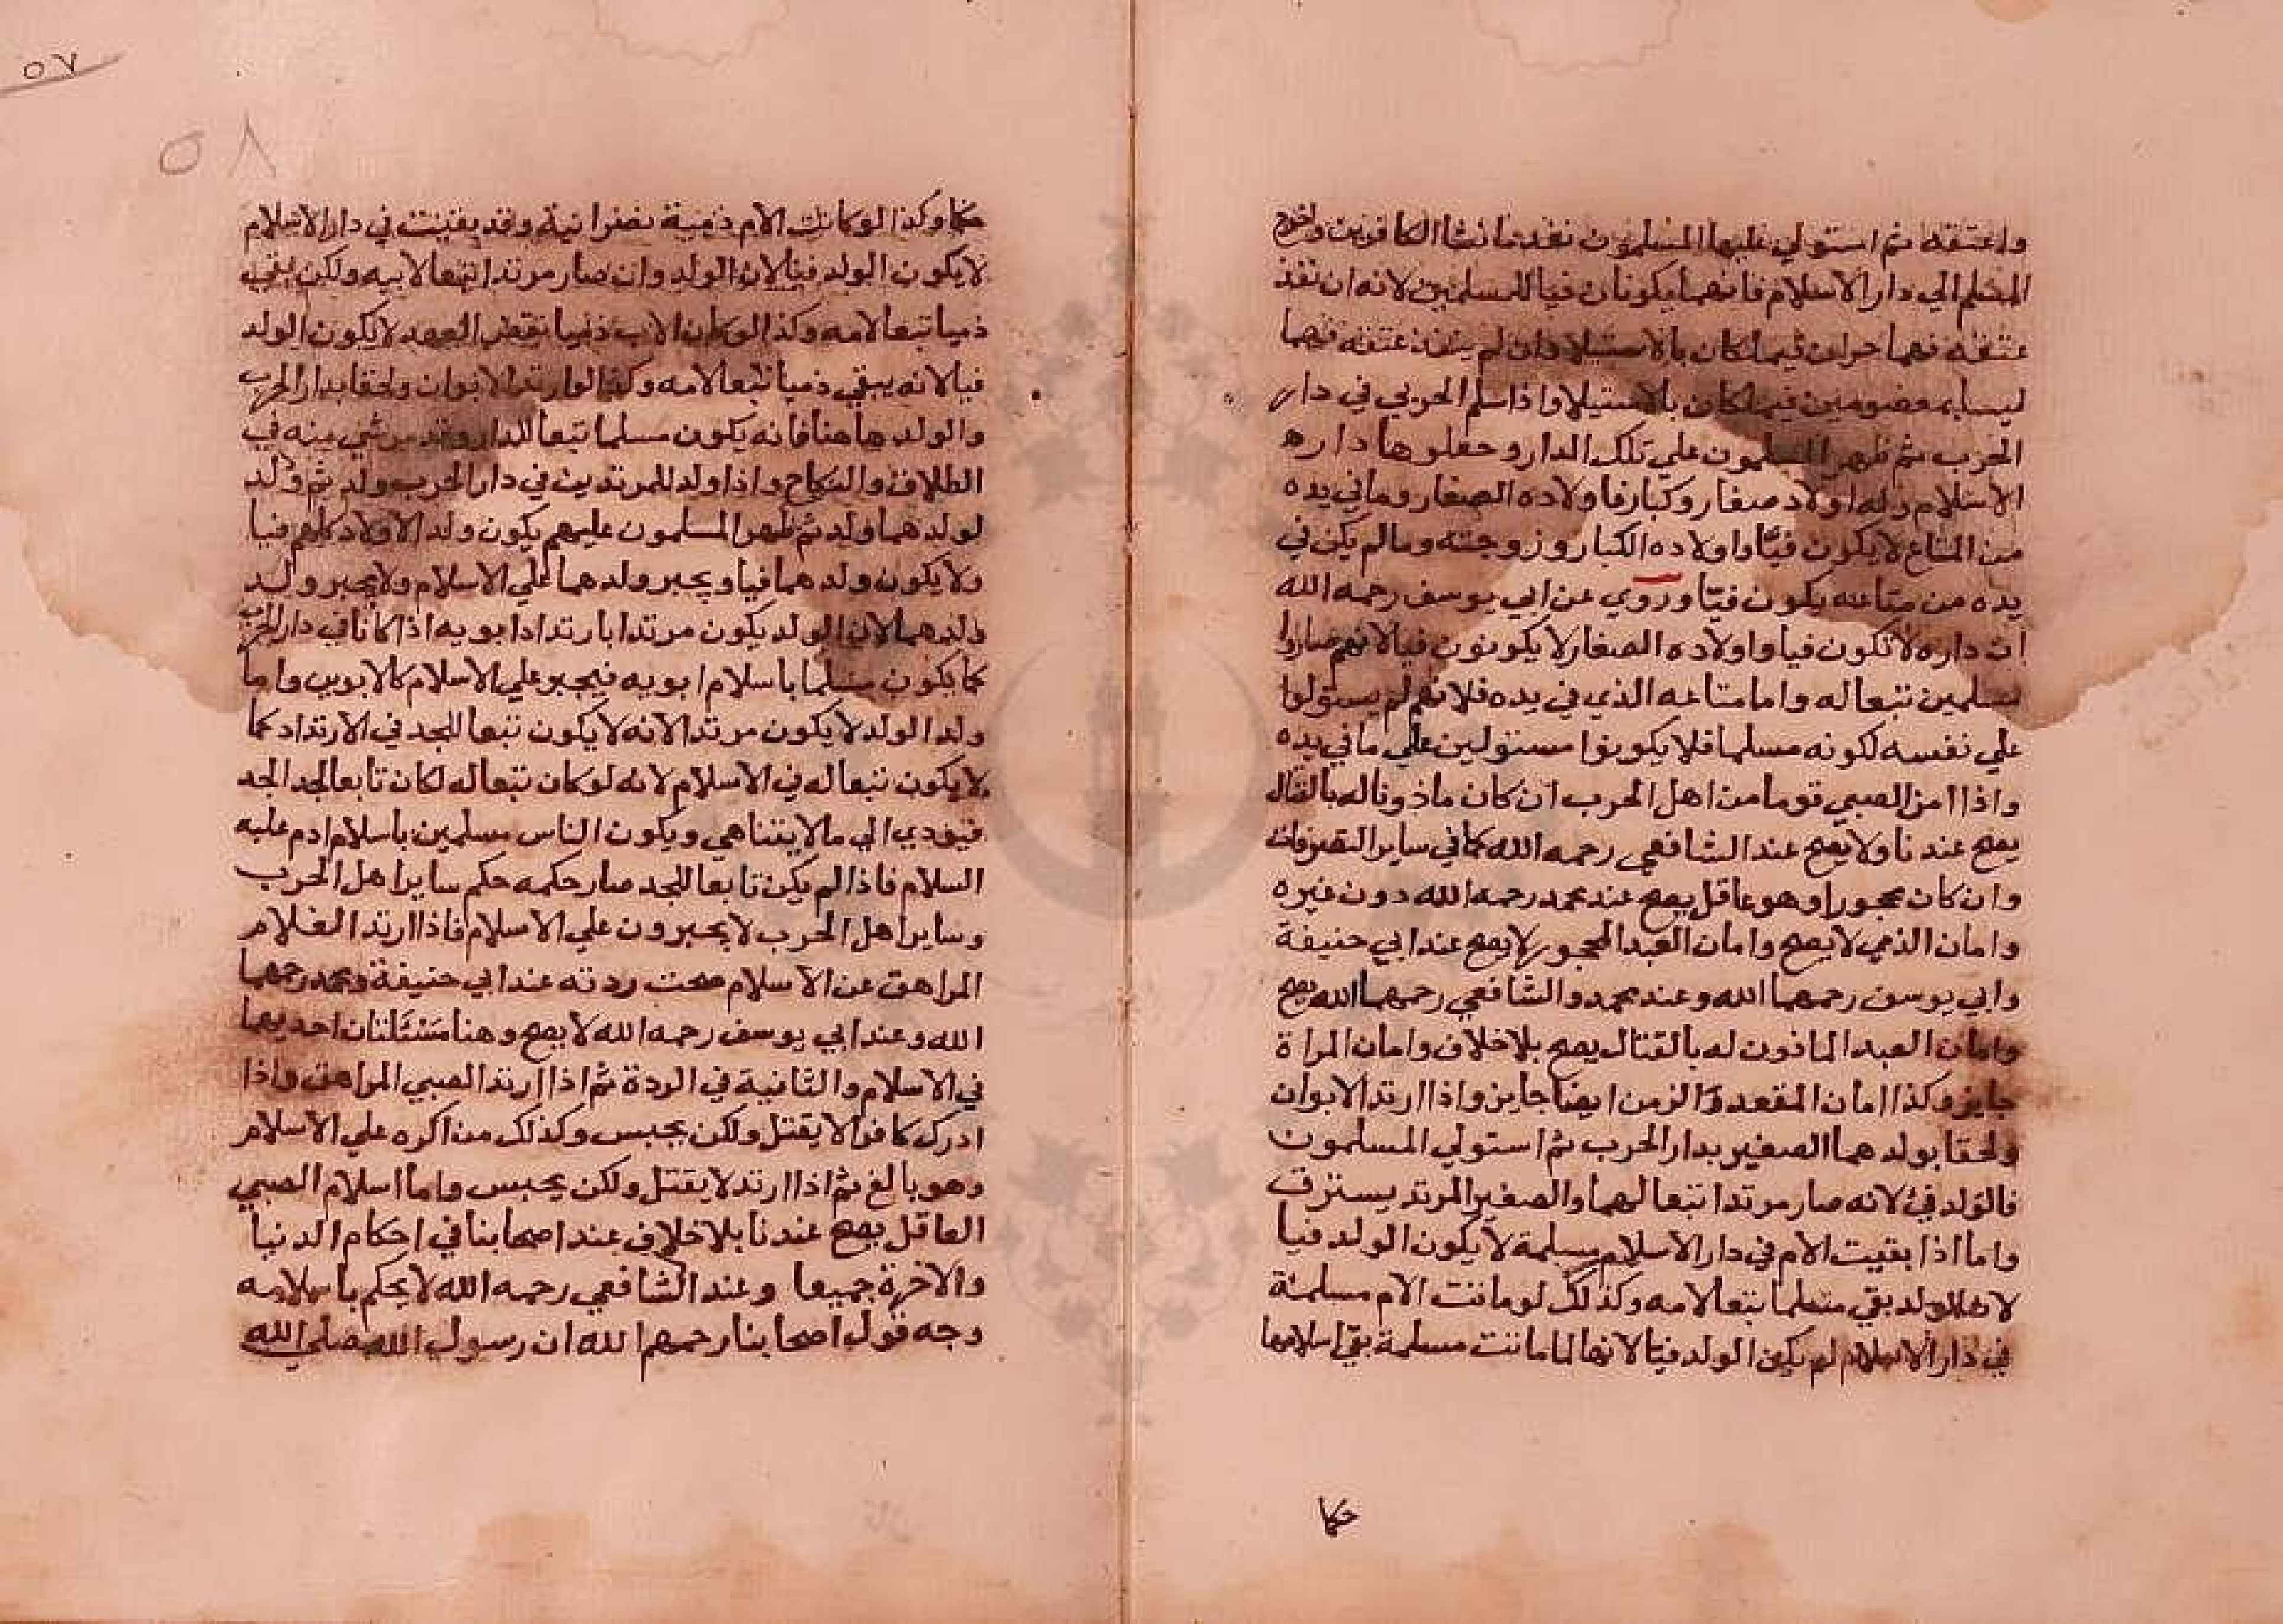 واعتقه ثم استولي عليها المسلمون نفذ الكافر واخرج
المسلم الي دار الاسلام فانهما يكونان فيا للمسلمين لانه ان نفذ
عتقه فهما حران فيملكان بالاستيلا وان لم ينفذ عتقه فهما
ليسا بمعصومين فيملكان بالاستيلا واذا سلم الحربي في دار
الحرب ثم ظهر المسلمون علي تلك الدار وجعلوها داره
الاسلام وله اولاد صغار وكبار فاولاده الصغار وما في يده
من المتاع لا يكون فيًا واولاده الكبار وزوجته وما لم يكن في
يده من متاعه يكون فيًا وروي عن ابي يوسف رحمه الله
ان داره لا تكون فيا واولاده الصغار لا يكونون فيا لانهم صاروا
مسلمين تبعا له واما متاعه الذي في يده فلانهم لم يستولوا
علي نفسه لكونه مسلما فلا يكونوا مستولين علي ما في يده
واذا امن الصبي قوما من اهل الحرب ان كان ماذونا له بالقتال
يصح عندنا ولا يصح عند الشافعي رحمه الله كما في ساير التصرفات
وان كان محجورا وهو عاقل يصح عند محمد رحمه الله دون غيره
وامان الذمي لا يصح وامان العبد المحجور لا يصح عند ابي حنيفة
وابي يوسف رحمهما الله وعند محمد والشافعي رحمهما الله يصح
وامان العبد الماذون له بالقتال يصح بلا خلاف وامان المراة
جايز وكذا امان المقعد والزمن ايضا جايز واذا ارتد الابوان
ولحقا بولدهما الصغير بدار الحرب ثم استولي المسلمون
فالولد فئ لانه صار مرتدا تبعا لهما والصغير المرتد يسترق
واما اذا بقيت الام في دار الاسلام مسلمة لا يكون الولد فيا
لان الولد بقي مسلما تبعا لامه وكذلك لو ماتت الام مسلمة
في دار الاسلام لم يكن الولد فيًا لانها لما ماتت مسلمة بقي اسلامها
حكما
٥٧
٥٨
حكما وكذا لو كانت الام ذمية نصرانية وقد بقيت في دار الاسلام
لا يكون الولد فيا لان الولد وان صار مرتدا تبعا لابيه ولكن بقي
ذميا تبعا لامه وكذا لو كان الاب ذميا نقض العهد لا يكون الولد
فيا لانه يبقي ذميا تبعا لامه وكذا لو ارتد الابوان ولحقا بدار الحرب
والولد هاهنا فانه يكون مسلما تبعا للدار وقد مر شي منه في
الطلاق والنكاح واذا ولد للمرتدين في دار الحرب ولد ثم ولد
لولدهما ولد ثم ظهر المسلمون عليهم يكون ولد الاولاد كلهم فيا
ولا يكون ولدهما فيا ويجبر ولدهما علي الاسلام ولا يجبر ولد
ولدهما لان الولد يكون مرتدا بارتداد ابويه اذا كانا في دار الحرب
كما يكون مسلما باسلام ابويه فيجبر علي الاسلام كالابوين واما
ولد الولد لا يكون مرتدا لانه لا يكون تبعا للجد في الارتداد كما
لا يكون تبعا له في الاسلام لانه لو كان تبعا له لكان تابعا لجد الجد
فيؤدي الي ما لا يتناهي ويكون الناس مسلمين باسلام ادم عليه
السلام فاذا لم يكن تابعا للجد صار حكمه حكم ساير اهل الحرب
وساير اهل الحرب لا يجبرون علي الاسلام فاذا ارتد الغلام
المراهق عن الاسلام صحت ردته عند ابي حنيفة ومحمد رحمهما
الله وعند ابي يوسف رحمه الله لا يصح وهنا مسئلتان احديهما
في الاسلام والثانية في الردة ثم اذا ارتد الصبي المراهق واذا
ادرك كافرا لا يقتل ولكن يحبس وكذلك من اكره علي الاسلام
وهو بالغ ثم اذا ارتد لا يقتل ولكن يحبس واما اسلام الصبي
العاقل يصح عندنا بلا خلاف عند اصحابنا في احكام الدنيا
والاخرة جميعا وعند الشافعي رحمه الله لا يحكم باسلامه
وجه قول اصحابنا رحمهم الله ان رسول الله صلي الله